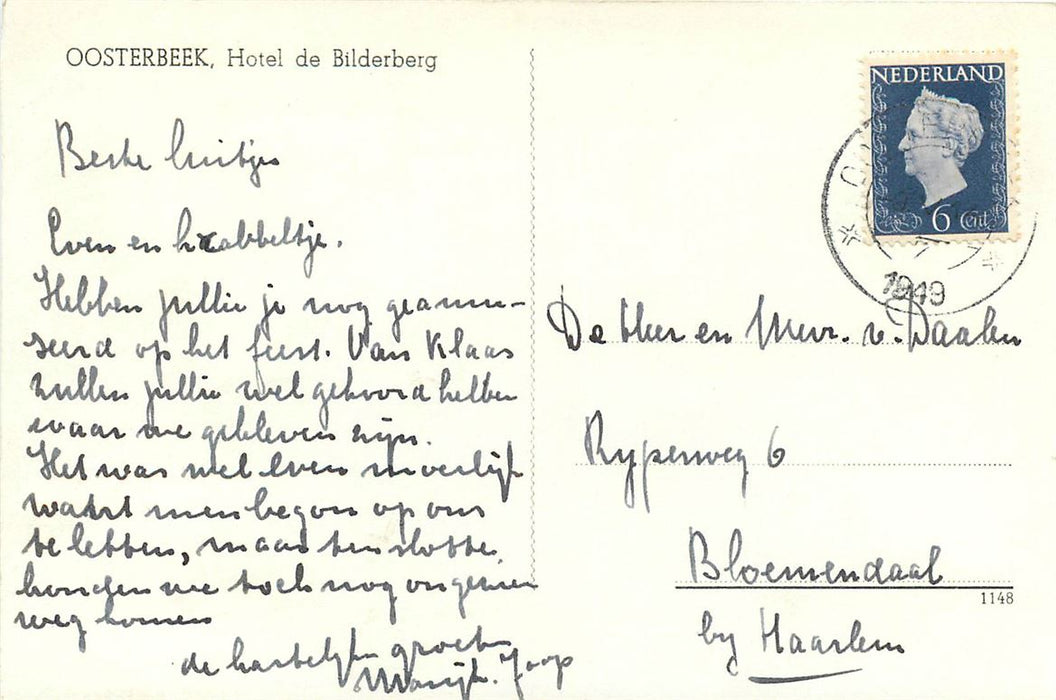 OOSTERBEEK, Hotel de Bilderberg
Beste luitjes
Even en krabbeltje.
Hebben jullie je nog geamu-
seerd op het feest. Van Klaas
zullen jullie wel gehoord hebben
waar we gebleven zijn.
Het was wel even moeilijk
want men begon op ons
te letten, maar ten slotte
konden we toch nog ongezien
weg komen
de hartelijke groeten
Joop
NEDERLAND
6 Cent
1949
De Heer en Mevr. v. Daalen
Ryperweg 6
Bloemendaal
1148
by Haarlem